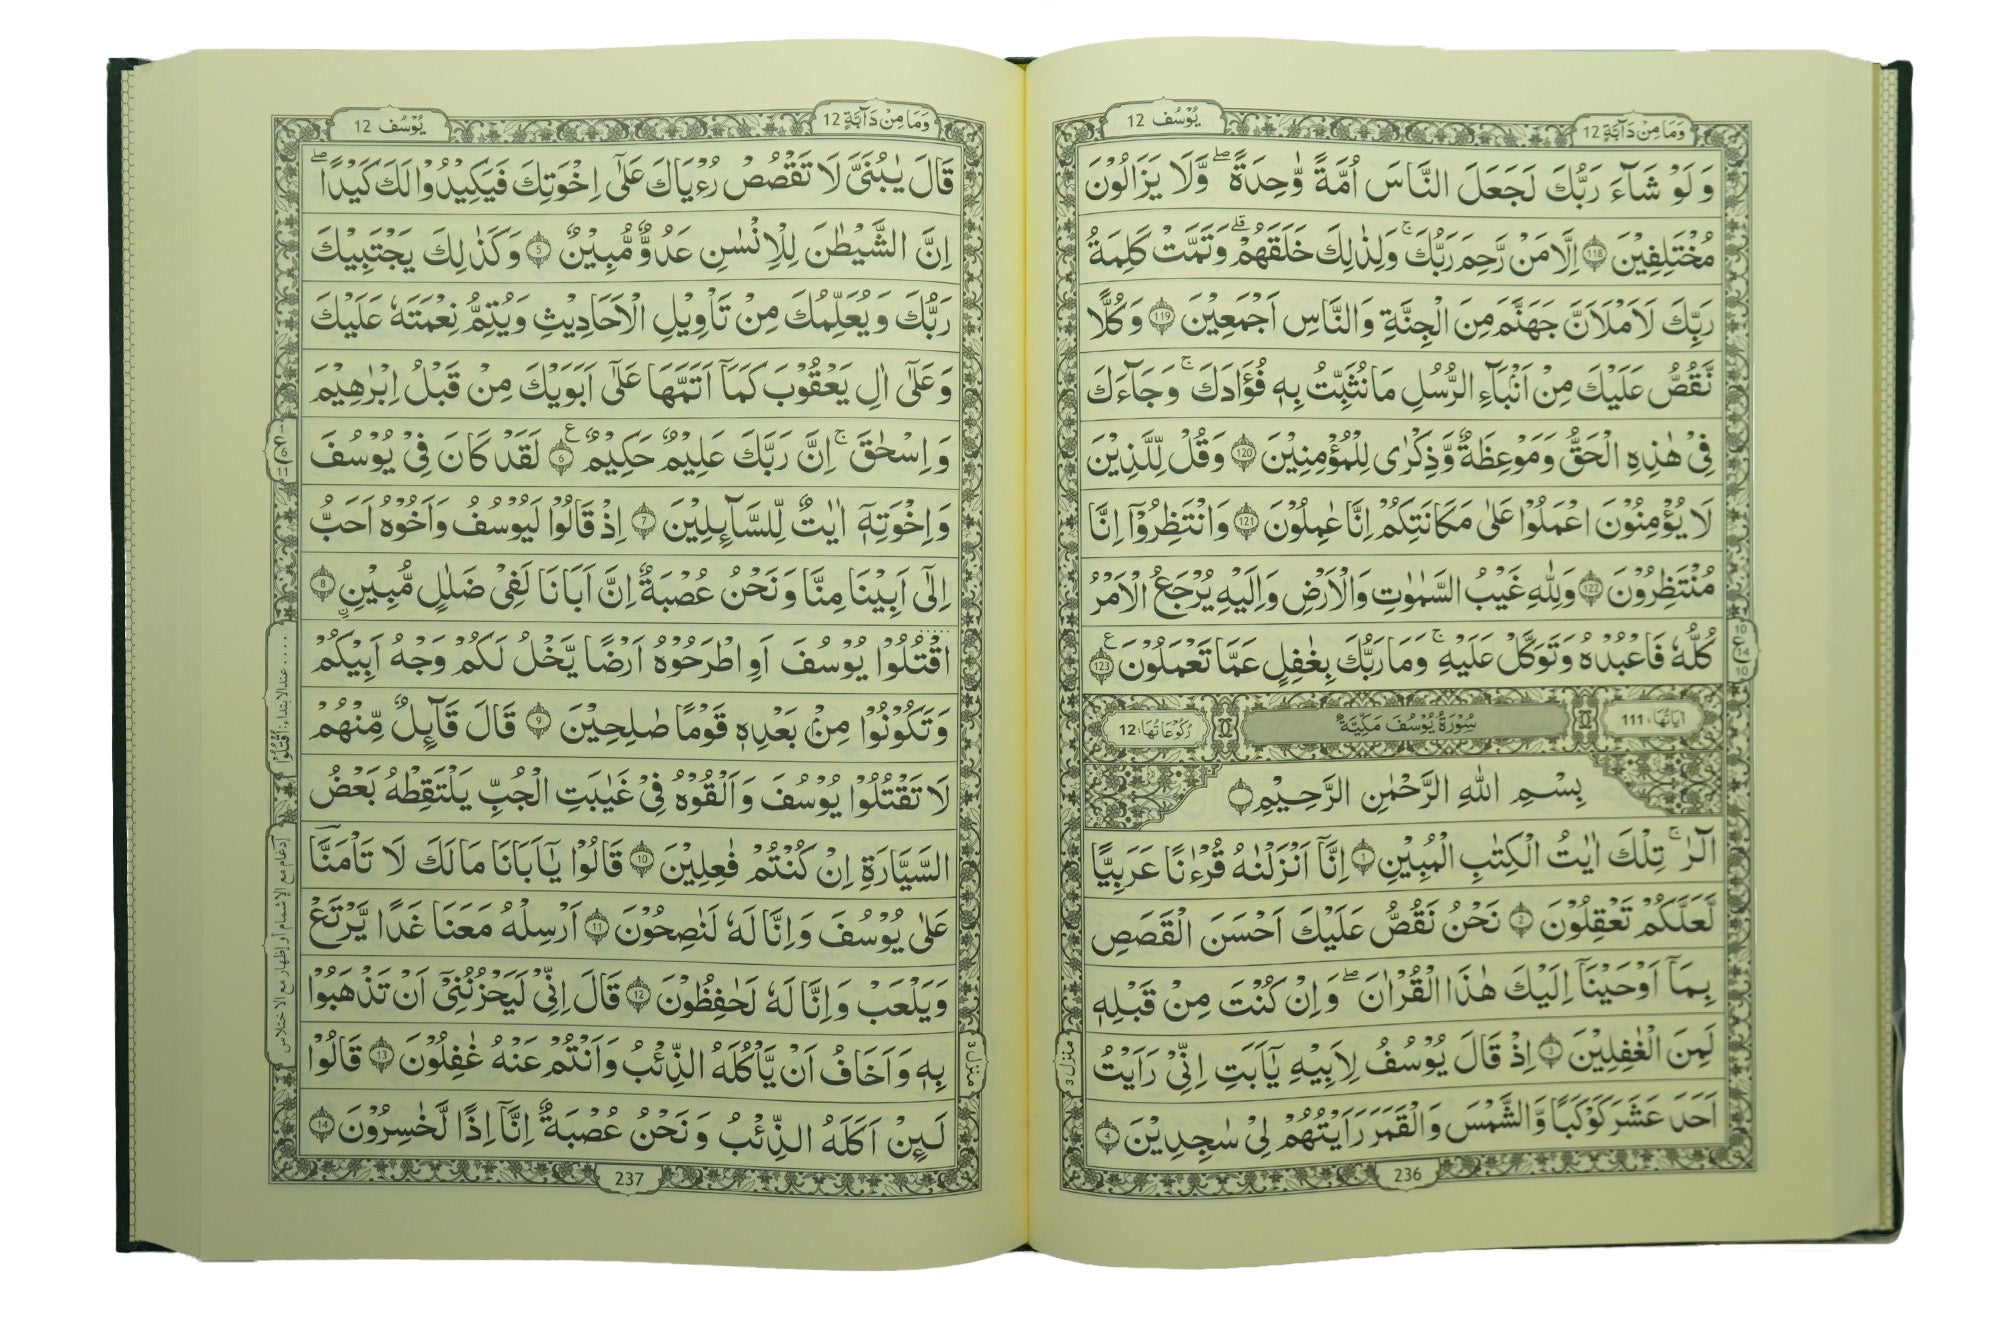 وَمَا مِنْ دَآبَّةٍ 12
يُوْسُف 12
وَ لَوْ شَآءَ رَبُّكَ لَجَعَلَ النَّاسَ اُمَّةً وَّاحِدَةً ۖ وَّلَا يَزَالُوْنَ
مُخْتَلِفِيْنَ 118 اِلَّا مَنْ رَّحِمَ رَبُّكَ ۚ وَلِذٰلِكَ خَلَقَهُمْ ۗ وَتَمَّتْ كَلِمَةُ
رَبِّكَ لَاَمْلَاَنَّ جَهَنَّمَ مِنَ الْجِنَّةِ وَالنَّاسِ اَجْمَعِيْنَ 119 وَ كُلًّا
نَّقُصُّ عَلَيْكَ مِنْ اَنْۢبَآءِ الرُّسُلِ مَا نُثَبِّتُ بِهٖ فُؤَادَكَ ۚ وَ جَآءَكَ
فِيْ هٰذِهِ الْحَقُّ وَمَوْعِظَةٌ وَّذِكْرٰى لِلْمُؤْمِنِيْنَ 120 وَقُلْ لِّلَّذِيْنَ
لَا يُؤْمِنُوْنَ اعْمَلُوْا عَلٰى مَكَانَتِكُمْ اِنَّا عٰمِلُوْنَ 121 وَانْتَظِرُوْٓا اِنَّا
مُنْتَظِرُوْنَ 122 وَلِلّٰهِ غَيْبُ السَّمٰوٰتِ وَالْاَرْضِ وَاِلَيْهِ يُرْجَعُ الْاَمْرُ
كُلُّهٗ فَاعْبُدْهُ وَتَوَكَّلْ عَلَيْهِ ۚ وَمَا رَبُّكَ بِغٰفِلٍ عَمَّا تَعْمَلُوْنَ 123 ع
اٰيَاتُهَا: 111 سُوْرَةُ يُوْسُفَ مَكِّيَّةٌ رُكُوْعَاتُهَا: 12
بِسْمِ اللّٰهِ الرَّحْمٰنِ الرَّحِيْمِ
الٓرٰ ۚ تِلْكَ اٰيٰتُ الْكِتٰبِ الْمُبِيْنِ 1 اِنَّآ اَنْزَلْنٰهُ قُرْءٰنًا عَرَبِيًّا
لَّعَلَّكُمْ تَعْقِلُوْنَ 2 نَحْنُ نَقُصُّ عَلَيْكَ اَحْسَنَ الْقَصَصِ
بِمَآ اَوْحَيْنَآ اِلَيْكَ هٰذَا الْقُرْاٰنَ ۖ وَاِنْ كُنْتَ مِنْ قَبْلِهٖ
لَمِنَ الْغٰفِلِيْنَ 3 اِذْ قَالَ يُوْسُفُ لِاَبِيْهِ يٰٓاَبَتِ اِنِّيْ رَاَيْتُ
اَحَدَ عَشَرَ كَوْكَبًا وَّالشَّمْسَ وَالْقَمَرَ رَاَيْتُهُمْ لِيْ سٰجِدِيْنَ 4
10
ع
14
10
منزل 3
236
وَمَا مِنْ دَآبَّةٍ 12
يُوْسُف 12
قَالَ يٰبُنَيَّ لَا تَقْصُصْ رُءْيَاكَ عَلٰٓى اِخْوَتِكَ فَيَكِيْدُوْا لَكَ كَيْدًا ۖ
اِنَّ الشَّيْطٰنَ لِلْاِنْسٰنِ عَدُوٌّ مُّبِيْنٌ 5 وَكَذٰلِكَ يَجْتَبِيْكَ
رَبُّكَ وَيُعَلِّمُكَ مِنْ تَاْوِيْلِ الْاَحَادِيْثِ وَيُتِمُّ نِعْمَتَهٗ عَلَيْكَ
وَعَلٰٓى اٰلِ يَعْقُوْبَ كَمَآ اَتَمَّهَا عَلٰٓى اَبَوَيْكَ مِنْ قَبْلُ اِبْرٰهِيْمَ
وَاِسْحٰقَ ۚ اِنَّ رَبَّكَ عَلِيْمٌ حَكِيْمٌ 6 ع لَقَدْ كَانَ فِيْ يُوْسُفَ
وَاِخْوَتِهٖٓ اٰيٰتٌ لِّلسَّآىِٕلِيْنَ 7 اِذْ قَالُوْا لَيُوْسُفُ وَاَخُوْهُ اَحَبُّ
اِلٰٓى اَبِيْنَا مِنَّا وَنَحْنُ عُصْبَةٌ اِنَّ اَبَانَا لَفِيْ ضَلٰلٍ مُّبِيْنِ 8
اقْتُلُوْا يُوْسُفَ اَوِ اطْرَحُوْهُ اَرْضًا يَّخْلُ لَكُمْ وَجْهُ اَبِيْكُمْ
وَتَكُوْنُوْا مِنْۢ بَعْدِهٖ قَوْمًا صٰلِحِيْنَ 9 قَالَ قَآىِٕلٌ مِّنْهُمْ
لَا تَقْتُلُوْا يُوْسُفَ وَاَلْقُوْهُ فِيْ غَيٰبَتِ الْجُبِّ يَلْتَقِطْهُ بَعْضُ
السَّيَّارَةِ اِنْ كُنْتُمْ فٰعِلِيْنَ 10 قَالُوْا يٰٓاَبَانَا مَالَكَ لَا تَاْمَنَّا
عَلٰى يُوْسُفَ وَاِنَّا لَهٗ لَنٰصِحُوْنَ 11 اَرْسِلْهُ مَعَنَا غَدًا يَّرْتَعْ
وَيَلْعَبْ وَاِنَّا لَهٗ لَحٰفِظُوْنَ 12 قَالَ اِنِّيْ لَيَحْزُنُنِيْٓ اَنْ تَذْهَبُوْا
بِهٖ وَاَخَافُ اَنْ يَّاْكُلَهُ الذِّئْبُ وَاَنْتُمْ عَنْهُ غٰفِلُوْنَ 13 قَالُوْا
لَىِٕنْ اَكَلَهُ الذِّئْبُ وَنَحْنُ عُصْبَةٌ اِنَّآ اِذًا لَّخٰسِرُوْنَ 14
ع
11
.... عند الابتداء: اُقْتُلُوْا
إدغام مع الإشمام أو إظهار مع الاختلاس
منزل 3
237